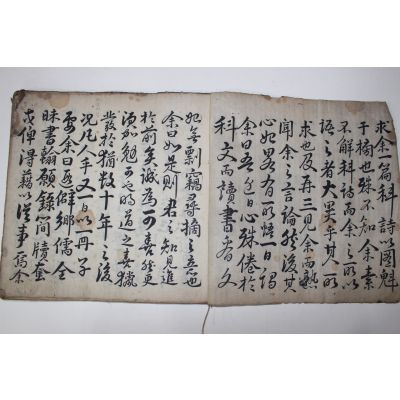 求余一篇科詩以圖魁
于橋也殊不加余素
不解科詩而余之所以
語之者大異乎其所
求也及再三見余而熟
聞余之言論然後其
心如異有所悟一日謂
余曰吾近日心殊倦於
科文而讀書看文
如無剽竊尋摘之意也
余曰如是則君之知見進
於前矣誠為可喜然更
須加勉可也時道之喪
發於猶數十年之後
況凡人乎又一日以冊子
要余曰遐鄉儒全
昧書翰願錄簡牘套
或俾得藉以從事焉余